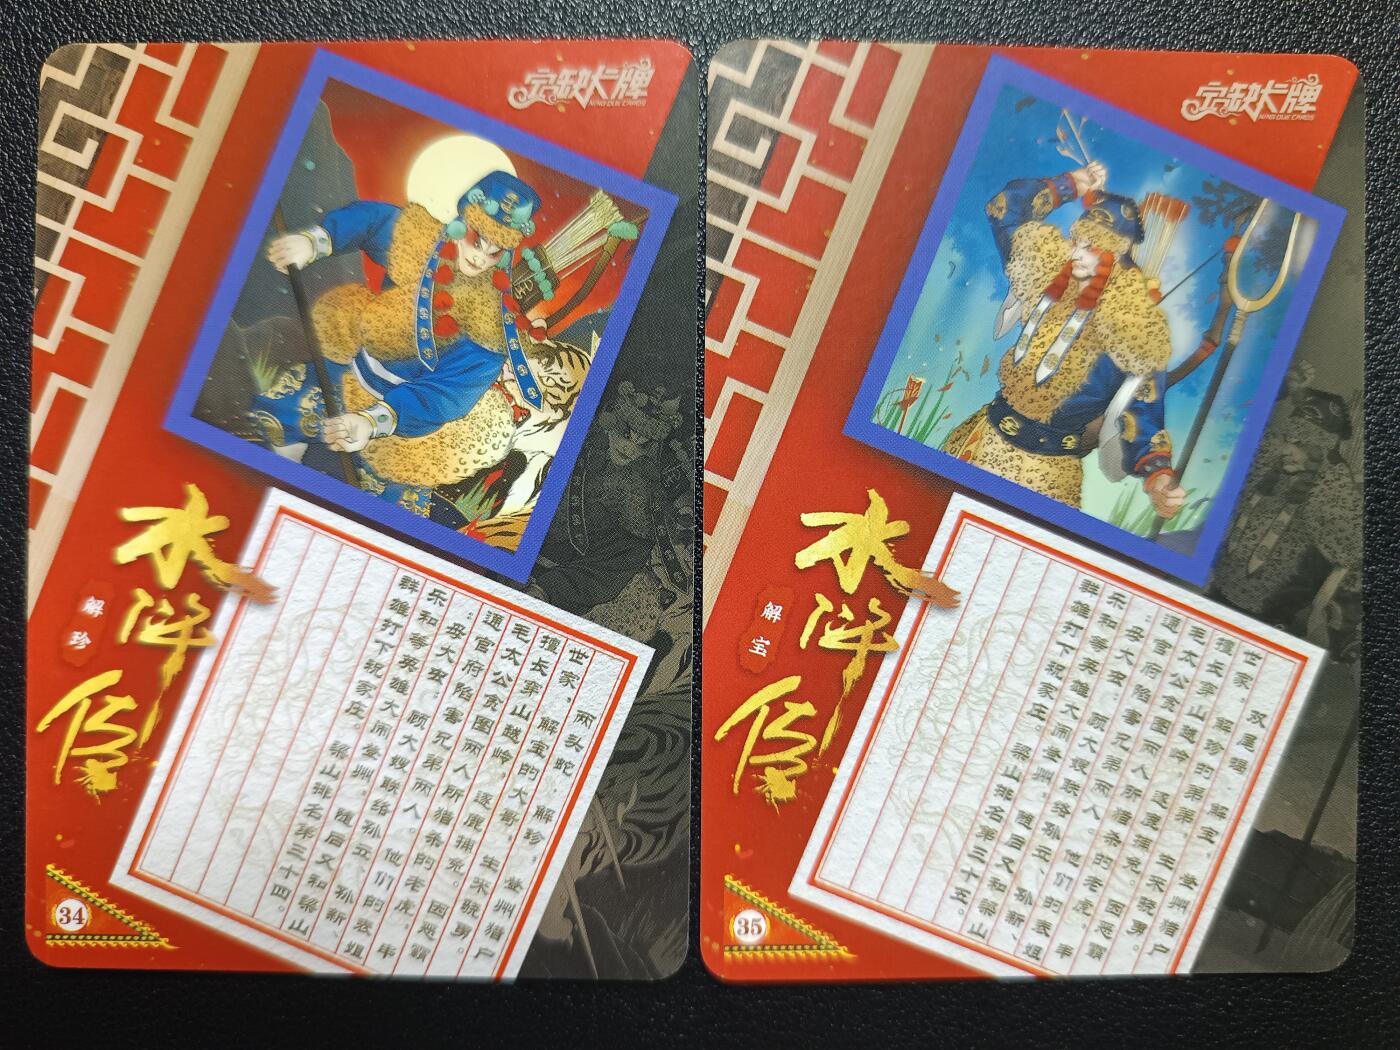 定缺大牌
NING QUE CARDS
水浒传
解珍
两头蛇，解珍，登州猎户
世家，解宝的大哥，生来骁勇。
擅长穿山越岭，逐鹿捕兔。因恶霸
毛太公贪图两人所猎杀的老虎，串
通官府陷害兄弟两人。他们的表姐
：母大虫：顾大嫂联络孙立、孙新、
乐和等英雄大闹登州。随后又和梁山
群雄打下祝家庄。梁山排名第三十四。
34
定缺大牌
NING QUE CARDS
水浒传
解宝
双尾蝎，解宝，登州猎户
世家，解珍的弟弟，生来骁勇。
擅长穿山越岭，逐鹿捕兔。因恶霸
毛太公贪图两人所猎杀的老虎，串
通官府陷害兄弟两人。他们的表姐
：母大虫：顾大嫂联络孙立、孙新、
乐和等英雄大闹登州。随后又和梁山
群雄打下祝家庄。梁山排名第三十五。
35